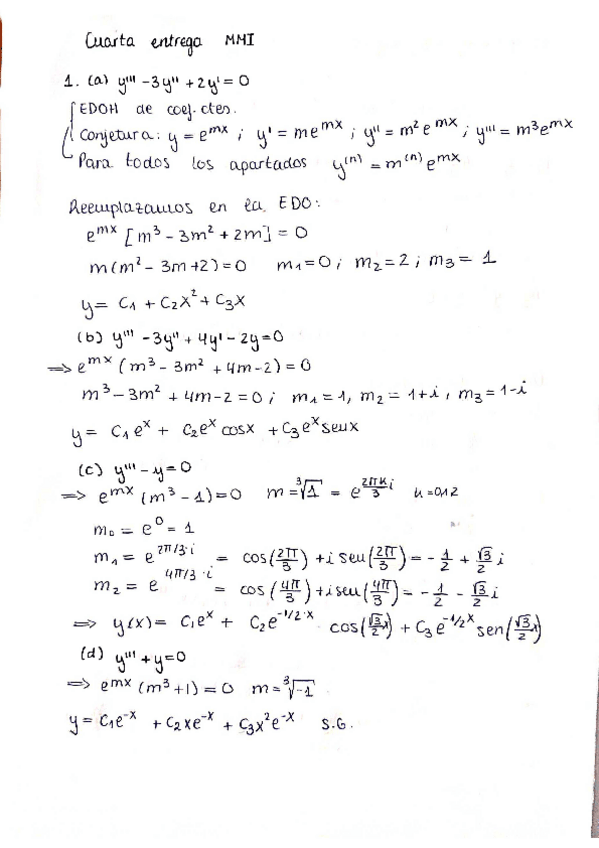 Cuarta entrega MMI
1. (a) y''' - 3y'' + 2y' = 0
EDOH de coef. ctes.
Conjetura: y = e^{mx} ; y' = me^{mx} ; y'' = m² e^{mx} ; y''' = m³e^{mx}
Para todos los apartados y^{(n)} = m^{(n)} e^{mx}
Reemplazamos en la EDO:
e^{mx} [m³ - 3m² + 2m] = 0
m(m² - 3m + 2) = 0 m₁ = 0 ; m₂ = 2 ; m₃ = 1
y = C₁ + C₂x² + C₃x
(b) y''' - 3y'' + 4y' - 2y = 0
⟹ e^{mx} (m³ - 3m² + 4m - 2) = 0
m³ - 3m² + 4m - 2 = 0 ; m₁ = 1, m₂ = 1+i, m₃ = 1-i
y = C₁e^x + C₂e^x cosx + C₃e^x senx
(c) y''' - y = 0
⟹ e^{mx} (m³ - 1) = 0 m = ∛1 = e^{2πk/3 i} k = 0,1,2
m₀ = e⁰ = 1
m₁ = e^{2π/3·i} = cos(2π/3) + i sen(2π/3) = -1/2 + √3/2 i
m₂ = e^{4π/3·i} = cos(4π/3) + i sen(4π/3) = -1/2 - √3/2 i
⟹ y(x) = C₁e^x + C₂e^{-1/2·x} cos(√3/2 x) + C₃e^{-1/2 x} sen(√3/2 x)
(d) y''' + y = 0
⟹ e^{mx} (m³ + 1) = 0 m = ∛-1
y = C₁e^{-x} + C₂xe^{-x} + C₃x²e^{-x} S.G.